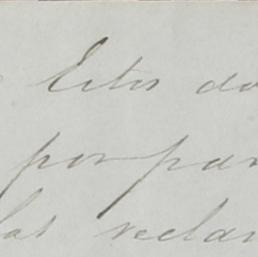 Estos do
por par
las reclam